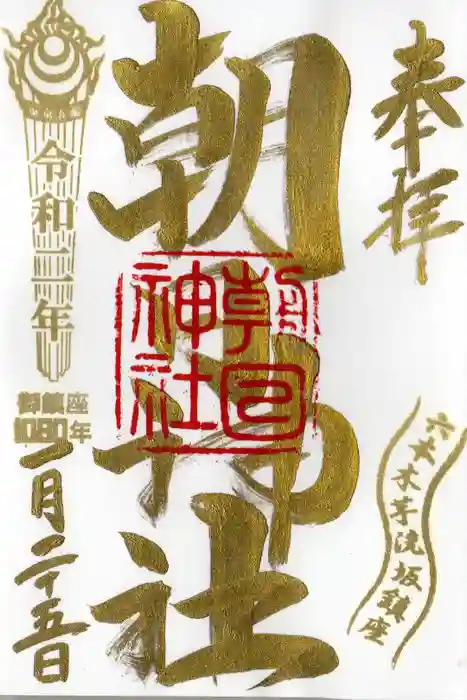 奉拝
六本木芋洗坂鎮座
朝日神社
朝日
神社
令和二年
御鎮座
1080年
一月二十五日